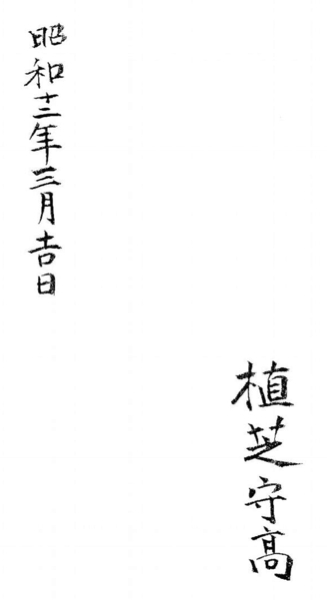 植芝守高
昭和十三年三月吉日